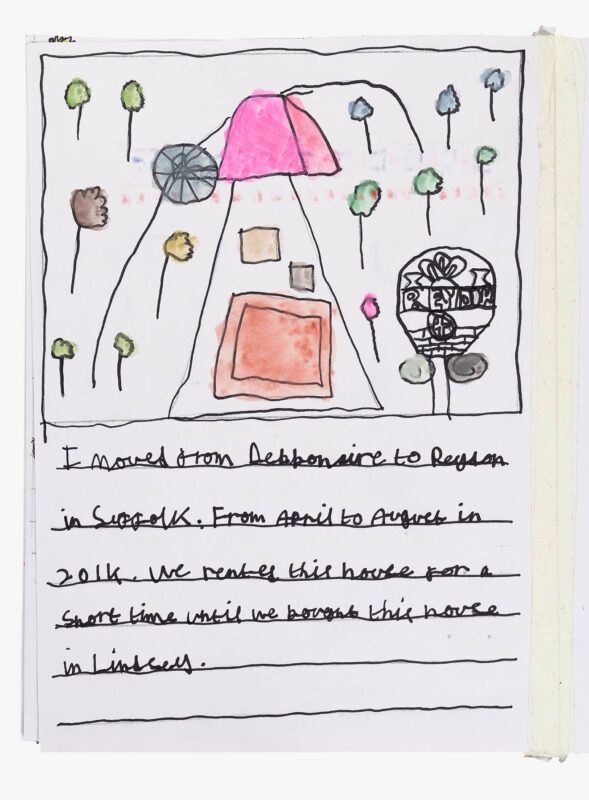 REYDON
I moved from Debbonaire to Reydon
in Suffolk. From April to August in
2014. We rented this house for a
short time until we bought this house
in Lindsey.